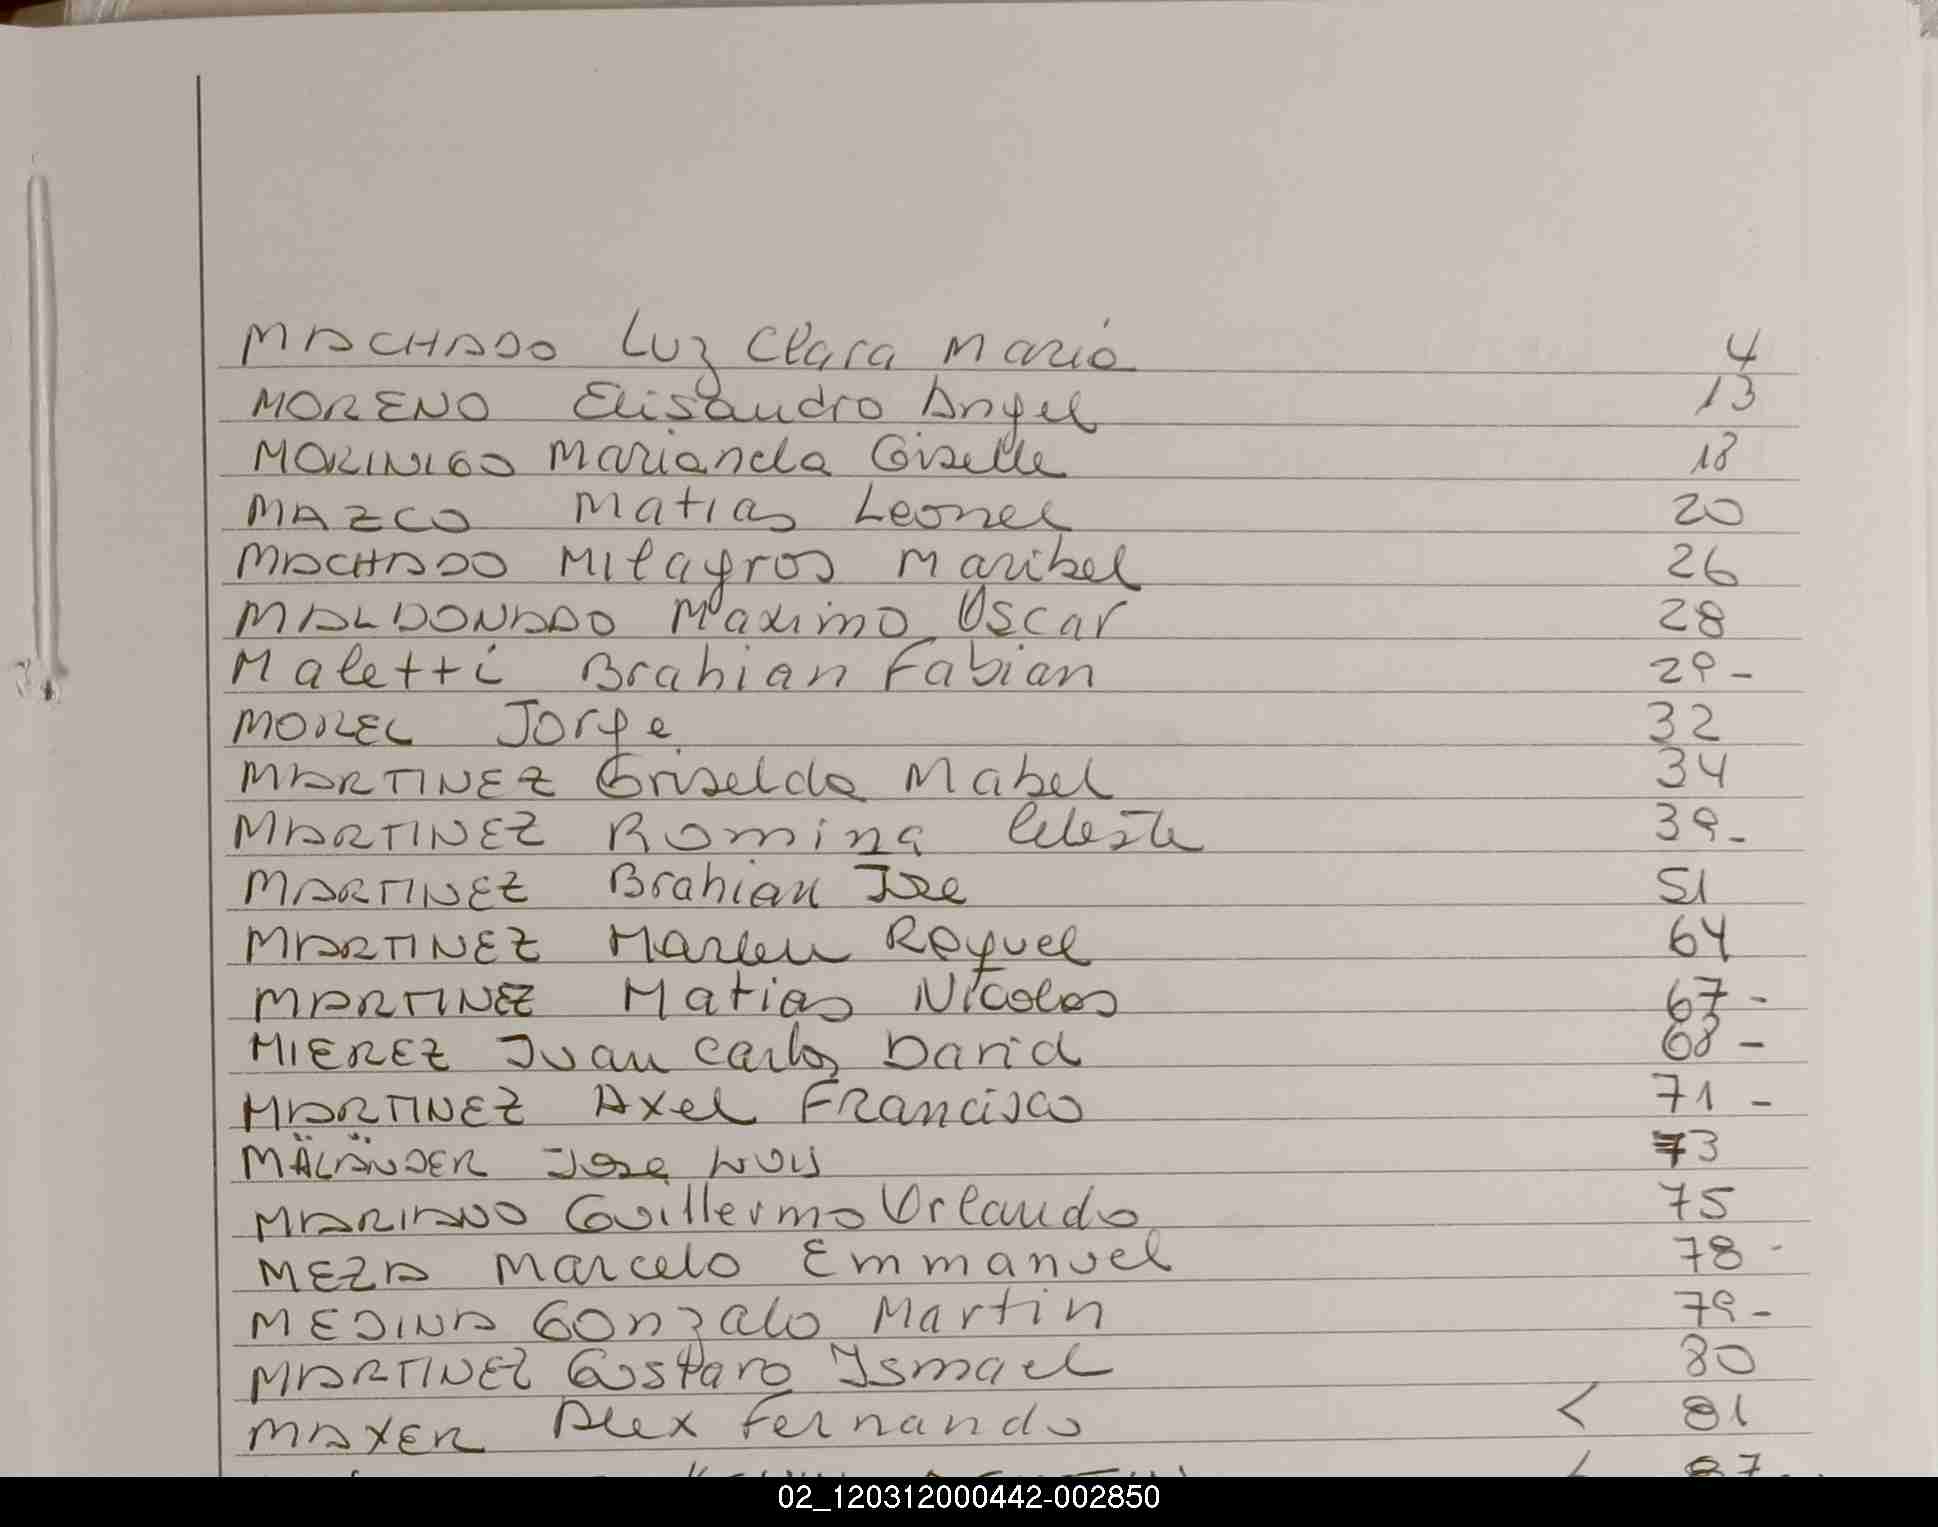 MACHADO Luz Clara María 4
MORENO Elisandro Angel 13
MORINIGO Marianela Giselle 18
MAZCO Matias Leonel 20
MACHADO Milagros Maribel 26
MALDONADO Maximo Oscar 28
Maletti Brahian Fabian 29-
MOREL Jorge 32
MARTINEZ Griselda Mabel 34
MARTINEZ Romina Celeste 39-
MARTINEZ Brahian Jose 51
MARTINEZ Marlen Raquel 64
MARTINEZ Matias Nicolas 67-
MIEREZ Juan Carlos David 68-
MARTINEZ Axel Francisco 71-
MÄLÄNDER Jose Luis 73
MARIANO Guillermo Orlando 75
MEZA Marcelo Emmanuel 78-
MEDINA Gonzalo Martin 79-
MARTINEZ Gustavo Ismael 80
MAXER Alex Fernando < 81
87-
02_120312000442-002850